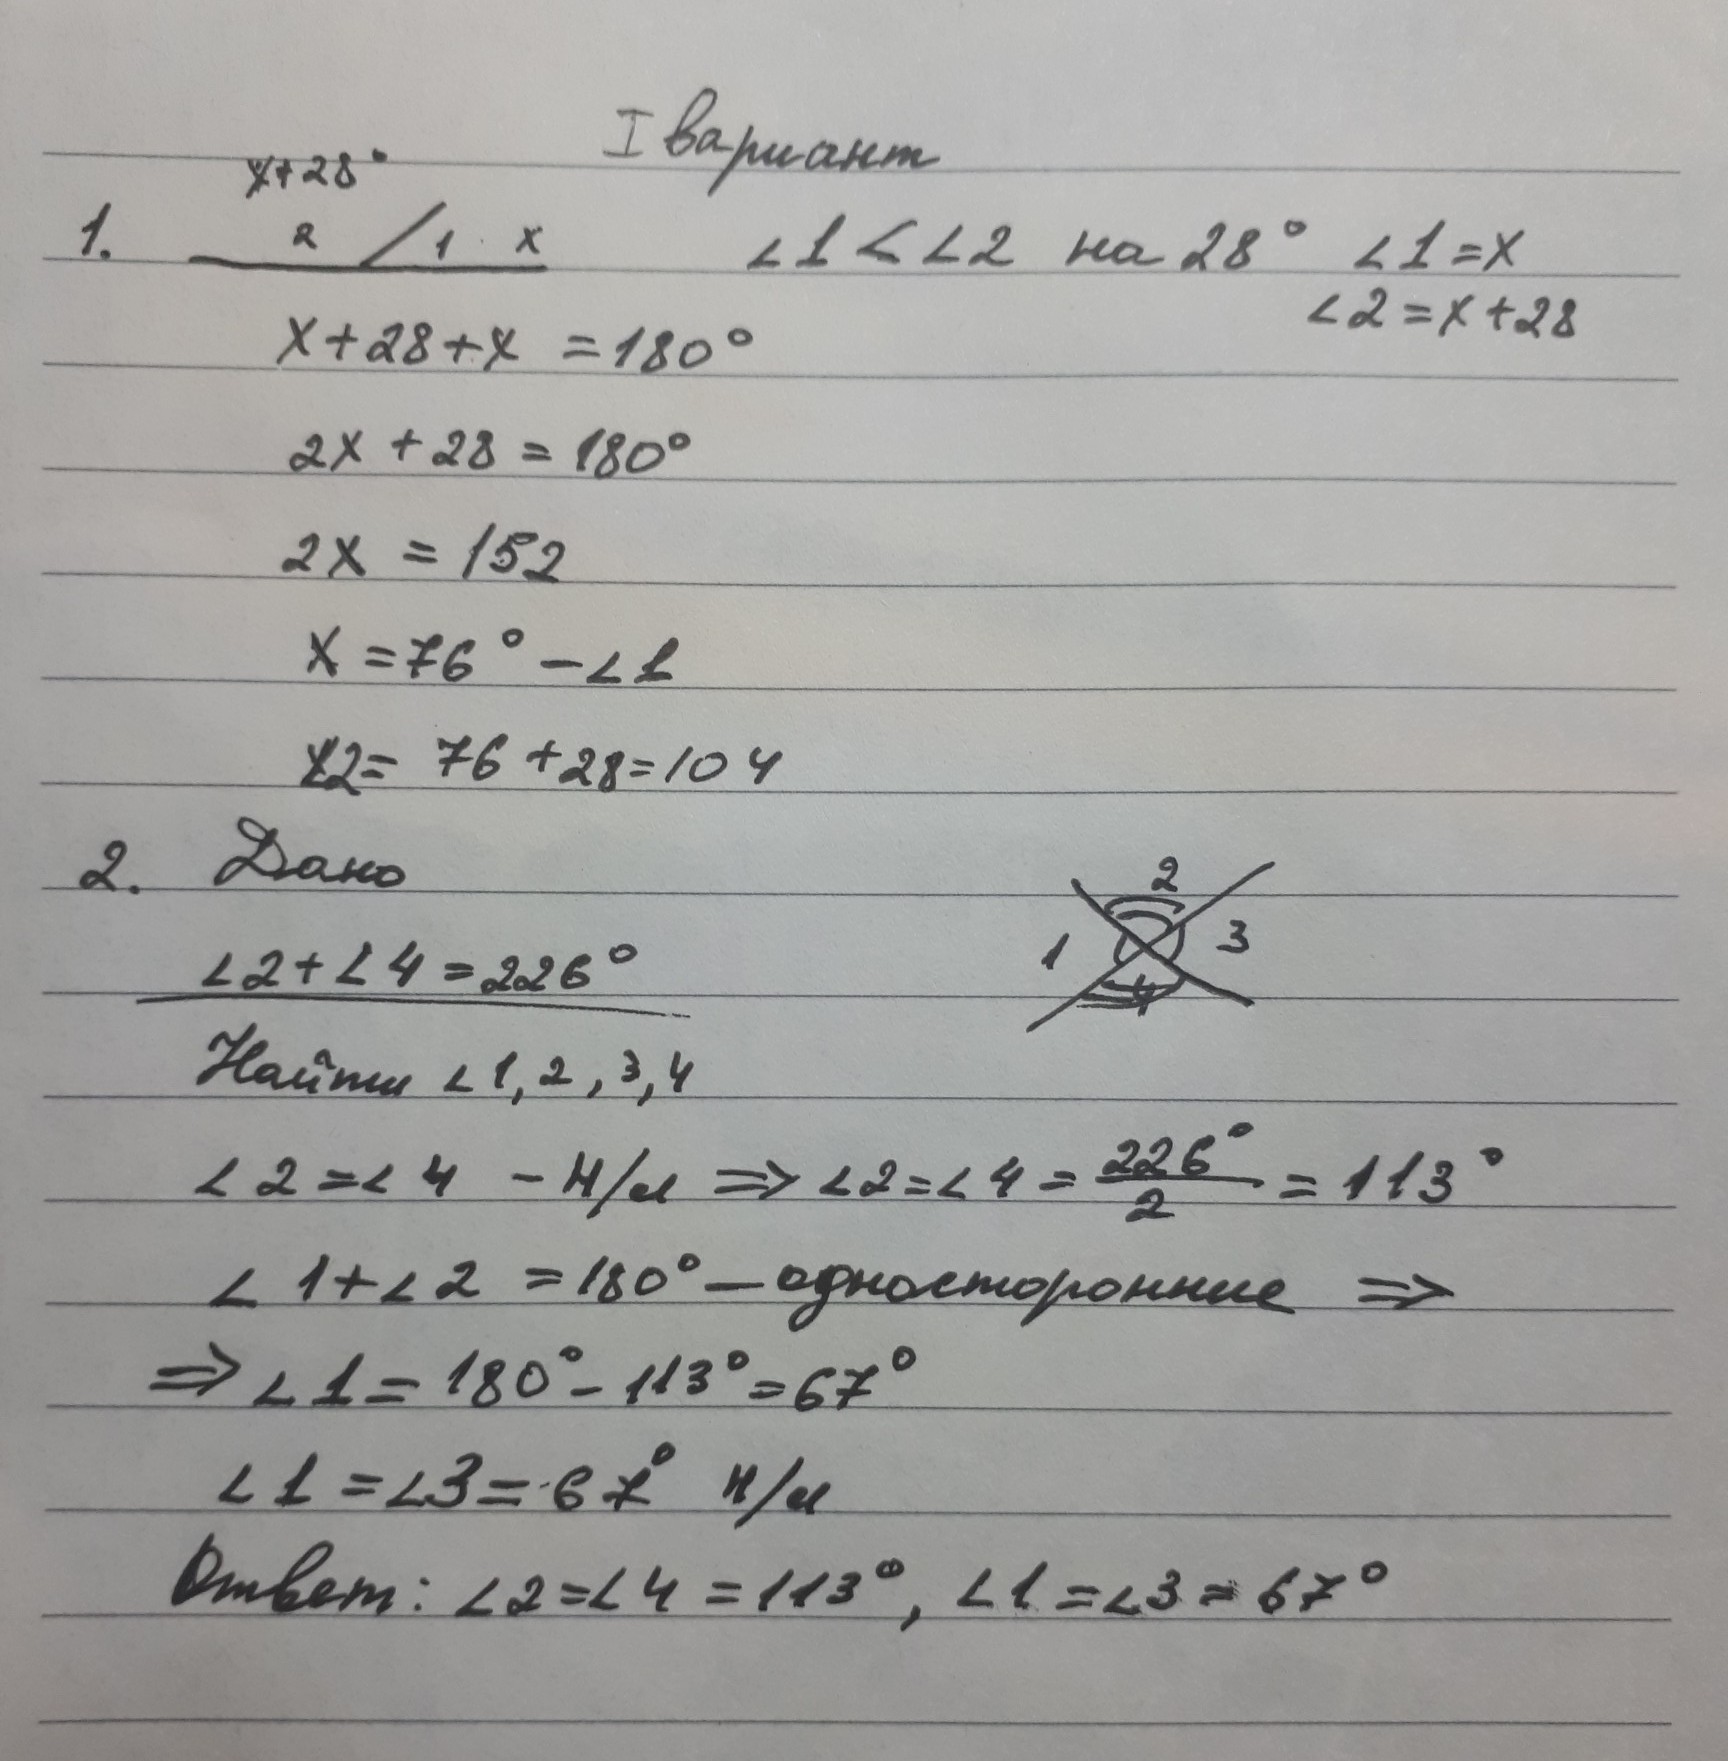 I вариант
x+28°
1. 2 / 1 x ∠1 < ∠2 на 28° ∠1 = x
∠2 = x + 28
x + 28 + x = 180°
2x + 28 = 180°
2x = 152
x = 76° – ∠1
∠2 = 76 + 28 = 104
2. Дано
∠2 + ∠4 = 226°
2
1 3
4
Найти ∠1, 2, 3, 4
∠2 = ∠4 – н/л ⇒ ∠2 = ∠4 = 226°/2 = 113°
∠1 + ∠2 = 180° – односторонние ⇒
⇒ ∠1 = 180° – 113° = 67°
∠1 = ∠3 = 67° н/л
Ответ: ∠2 = ∠4 = 113°, ∠1 = ∠3 = 67°